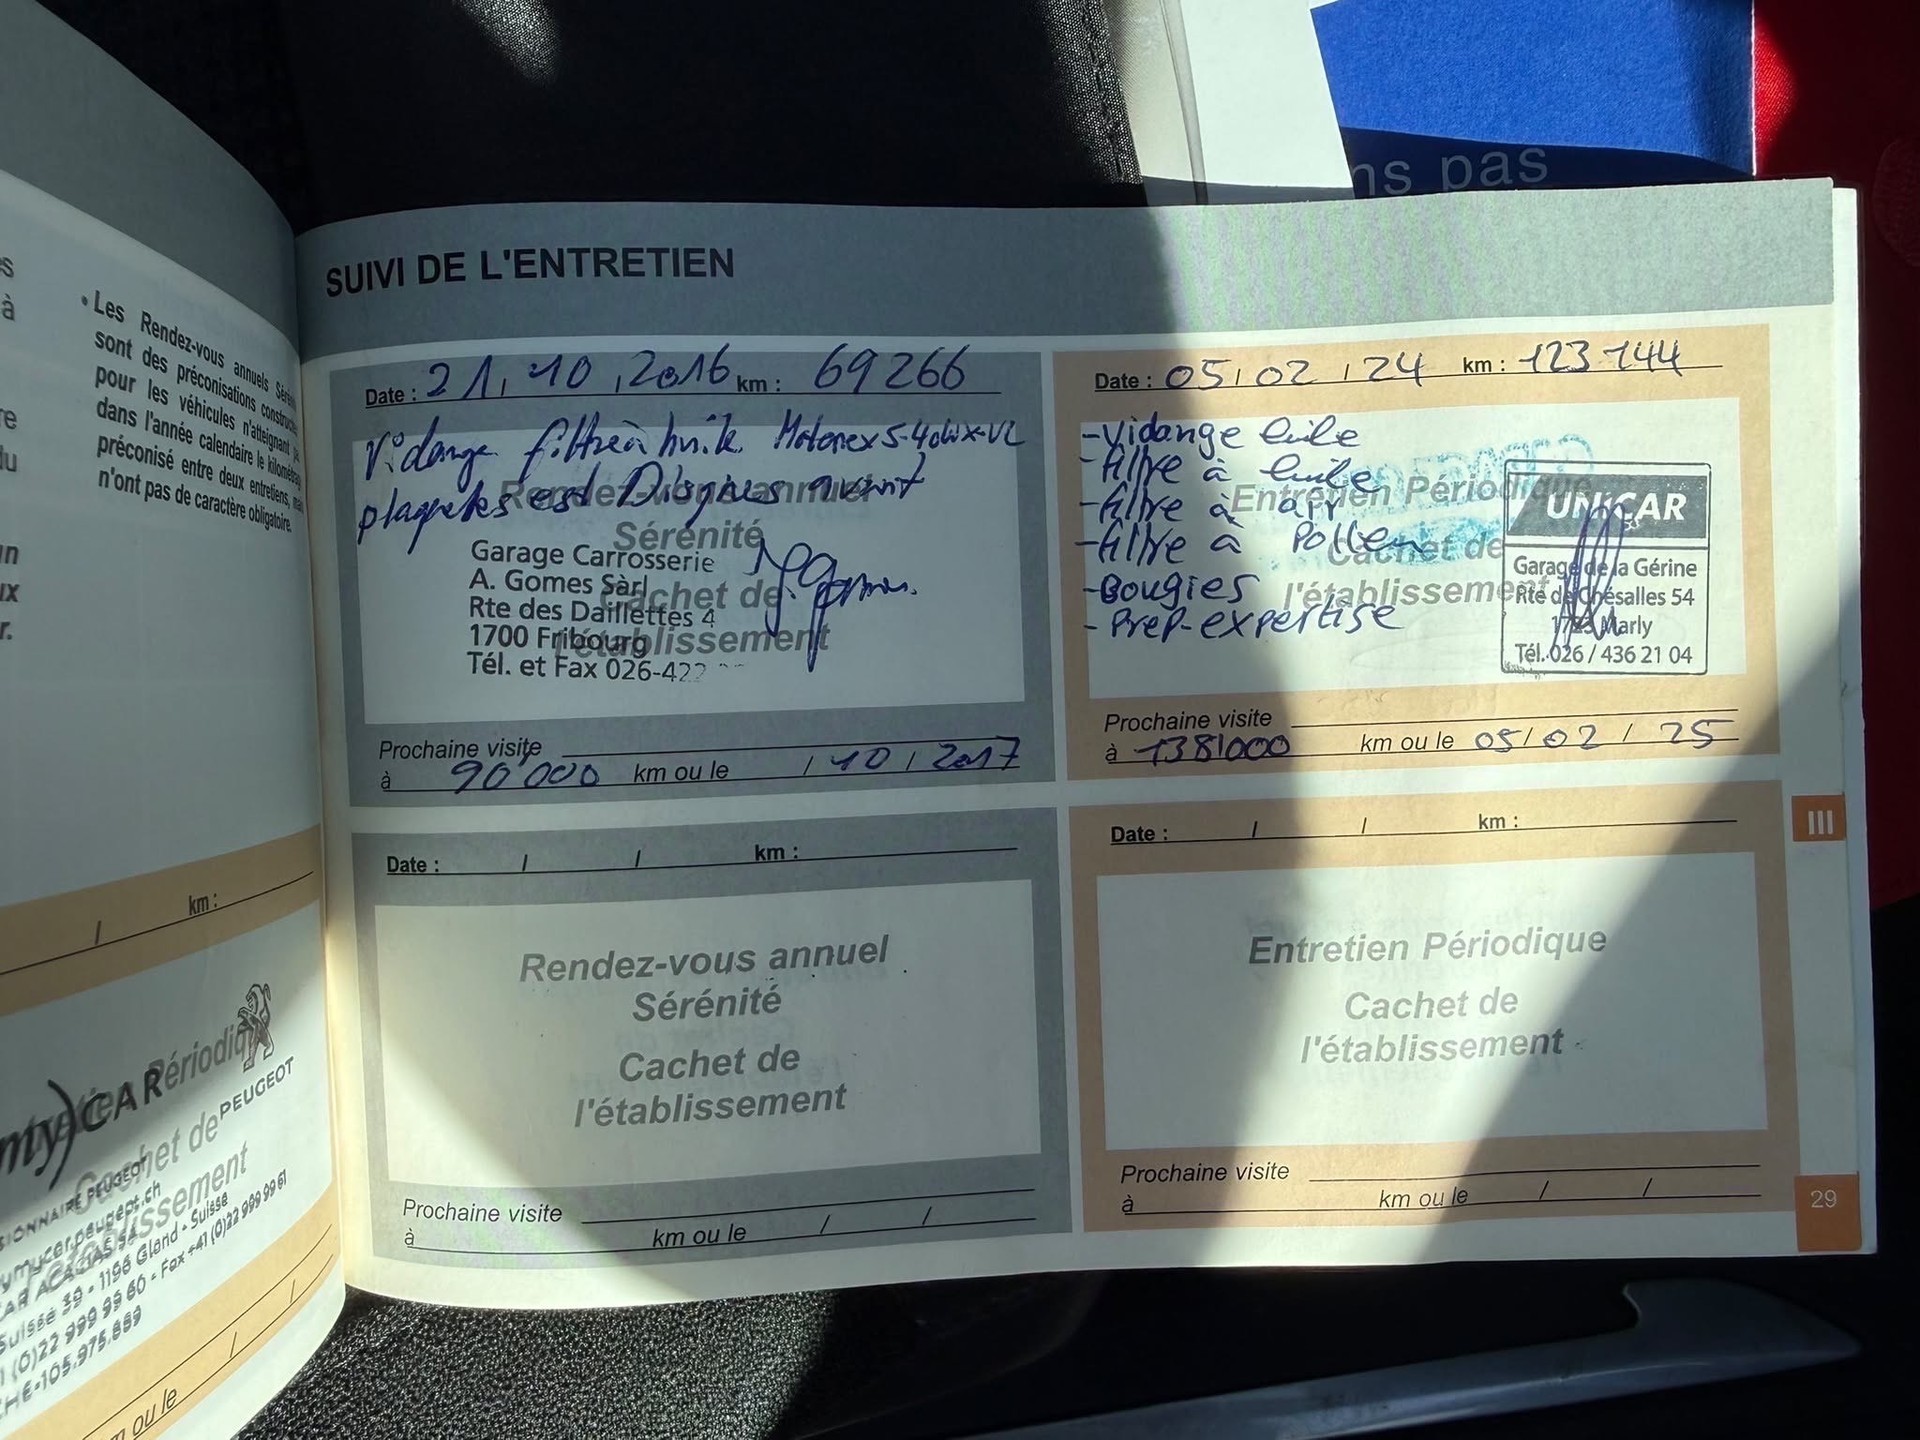 ns pas
SUIVI DE L'ENTRETIEN
• Les Rendez-vous annuels
sont des préconisations
pour les véhicules n'atteignant
dans l'année calendaire le
préconisé entre deux entretiens,
n'ont pas de caractère obligatoire.
à
km :
Périodique
my)CAR
PEUGEOT
Cachet de
1196 Gland - Suisse
Fax +41 (0)22 999 99 61
(0)22 999 99 60
CHE-105.975.889
km ou le
Date : 21, 10, 2016 km : 69266
Vidange filtre à huile Motorex 5-40
plaquettes est Disques avant
Rendez-vous annuel
Sérénité
Cachet de
l'établissement
Garage Carrosserie
A. Gomes Sàrl
Rte des Daillettes 4
1700 Fribourg
Tél. et Fax 026-422
Prochaine visite
à 90 000 km ou le / 10 / 2017
Date : 05 / 02 / 24 km : 123 144
- Vidange huile
- filtre à huile
- filtre à air
- filtre à Pollen
- Bougies
- Prep-expertise
Entretien Périodique
Cachet de
l'établissement
UNICAR
Garage de la Gérine
Rte de Chésalles 54
1723 Marly
Tél. 026 / 436 21 04
Prochaine visite
à 138'000 km ou le 05 / 02 / 25
Date : / / km :
Rendez-vous annuel
Sérénité
Cachet de
l'établissement
Prochaine visite
à km ou le / /
Date : / / km :
Entretien Périodique
Cachet de
l'établissement
Prochaine visite
à km ou le / /
III
29